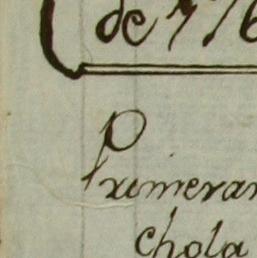 de 176
Primeram
chola